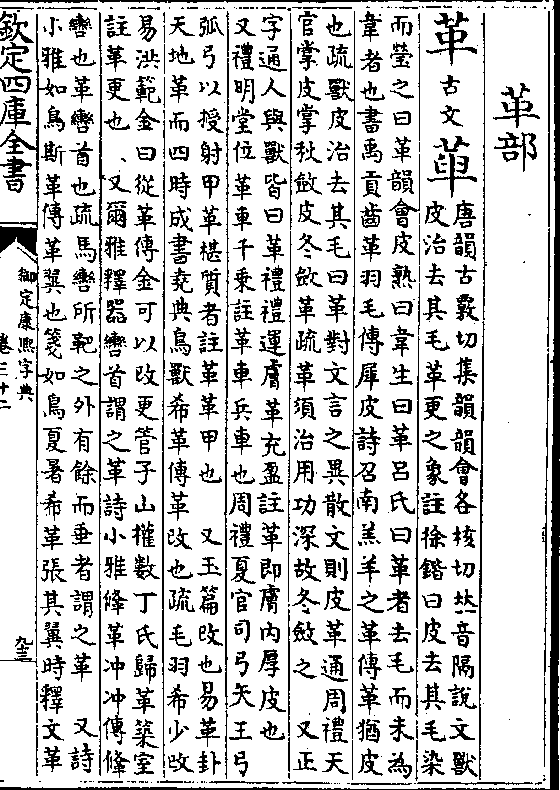 革部
革 古文 𠦶
唐韻古覈切集韻韻會各核切𠀤音隔說文獸
皮治去其毛革更之象註徐鍇曰皮去其毛染
而瑩之曰革韻會皮熟曰韋生曰革呂氏曰革者去毛而未為
韋者也書禹貢齒革羽毛傳犀皮詩召南羔羊之革傳革猶皮
也疏獸皮治去其毛曰革對文言之異散文則皮革通周禮天
官掌皮掌秋斂皮冬斂革疏革須治用功深故冬斂之 又正
字通人與獸皆曰革禮禮運膚革充盈註革即膚內厚皮也
又禮明堂位革車千乘註革車兵車也周禮夏官司弓矢王弓
弧弓以授射甲革椹質者註革革甲也 又玉篇改也易革卦
天地革而四時成書堯典鳥獸希革傳革改也疏毛羽希少改
易洪範金曰從革傳金可以改更管子山權數丁氏歸革築室
註革更也 又爾雅釋器轡首謂之革詩小雅鞗革冲冲傳鞗
轡也革轡首也疏馬轡所靶之外有餘而垂者謂之革 又詩
小雅如鳥斯革傳革翼也箋如鳥夏暑希革張其翼時釋文革
欽定四庫全書
御定康熙字典
卷三十二
九十三